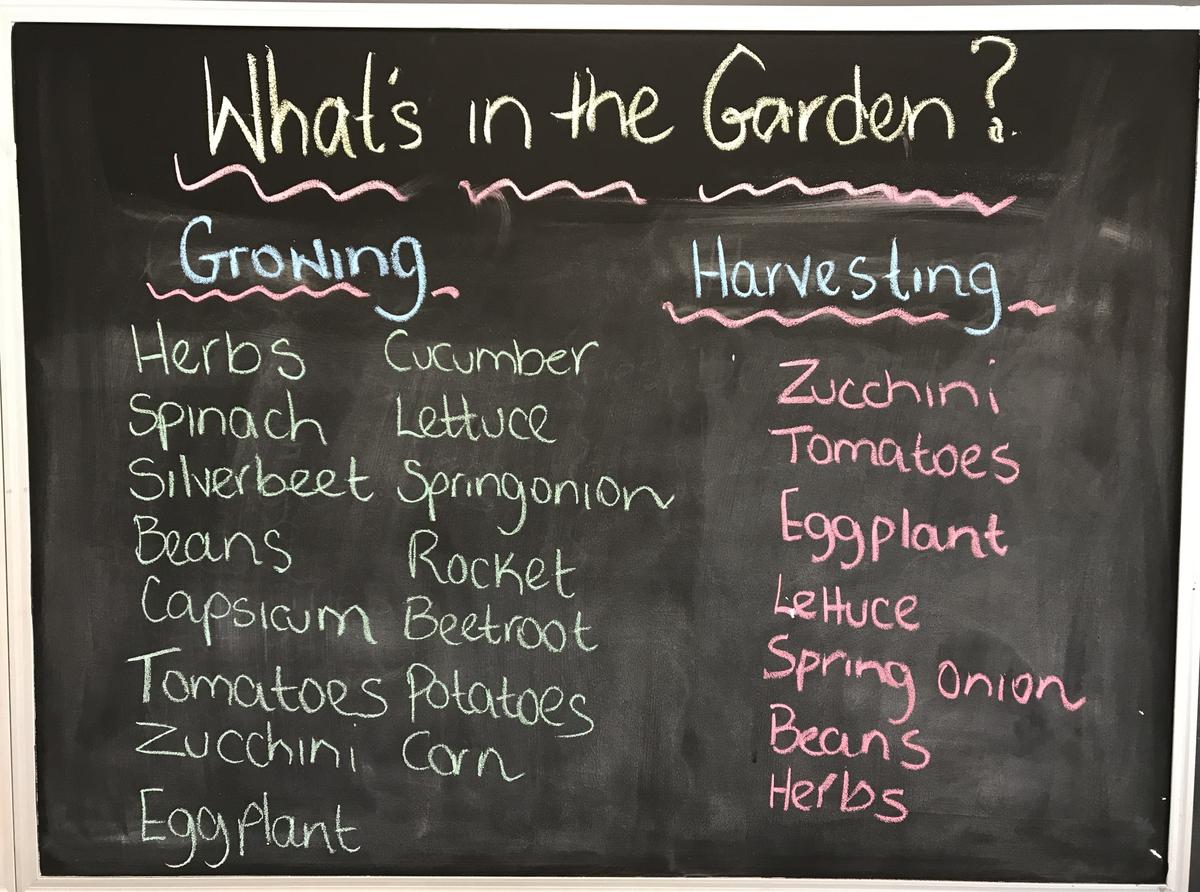 What's in the Garden?
Growing
Herbs
Spinach
Silverbeet
Beans
Capsicum
Tomatoes
Zucchini
Eggplant
Cucumber
Lettuce
Springonion
Rocket
Beetroot
Potatoes
Corn
Harvesting
Zucchini
Tomatoes
Eggplant
Lettuce
Spring onion
Beans
Herbs